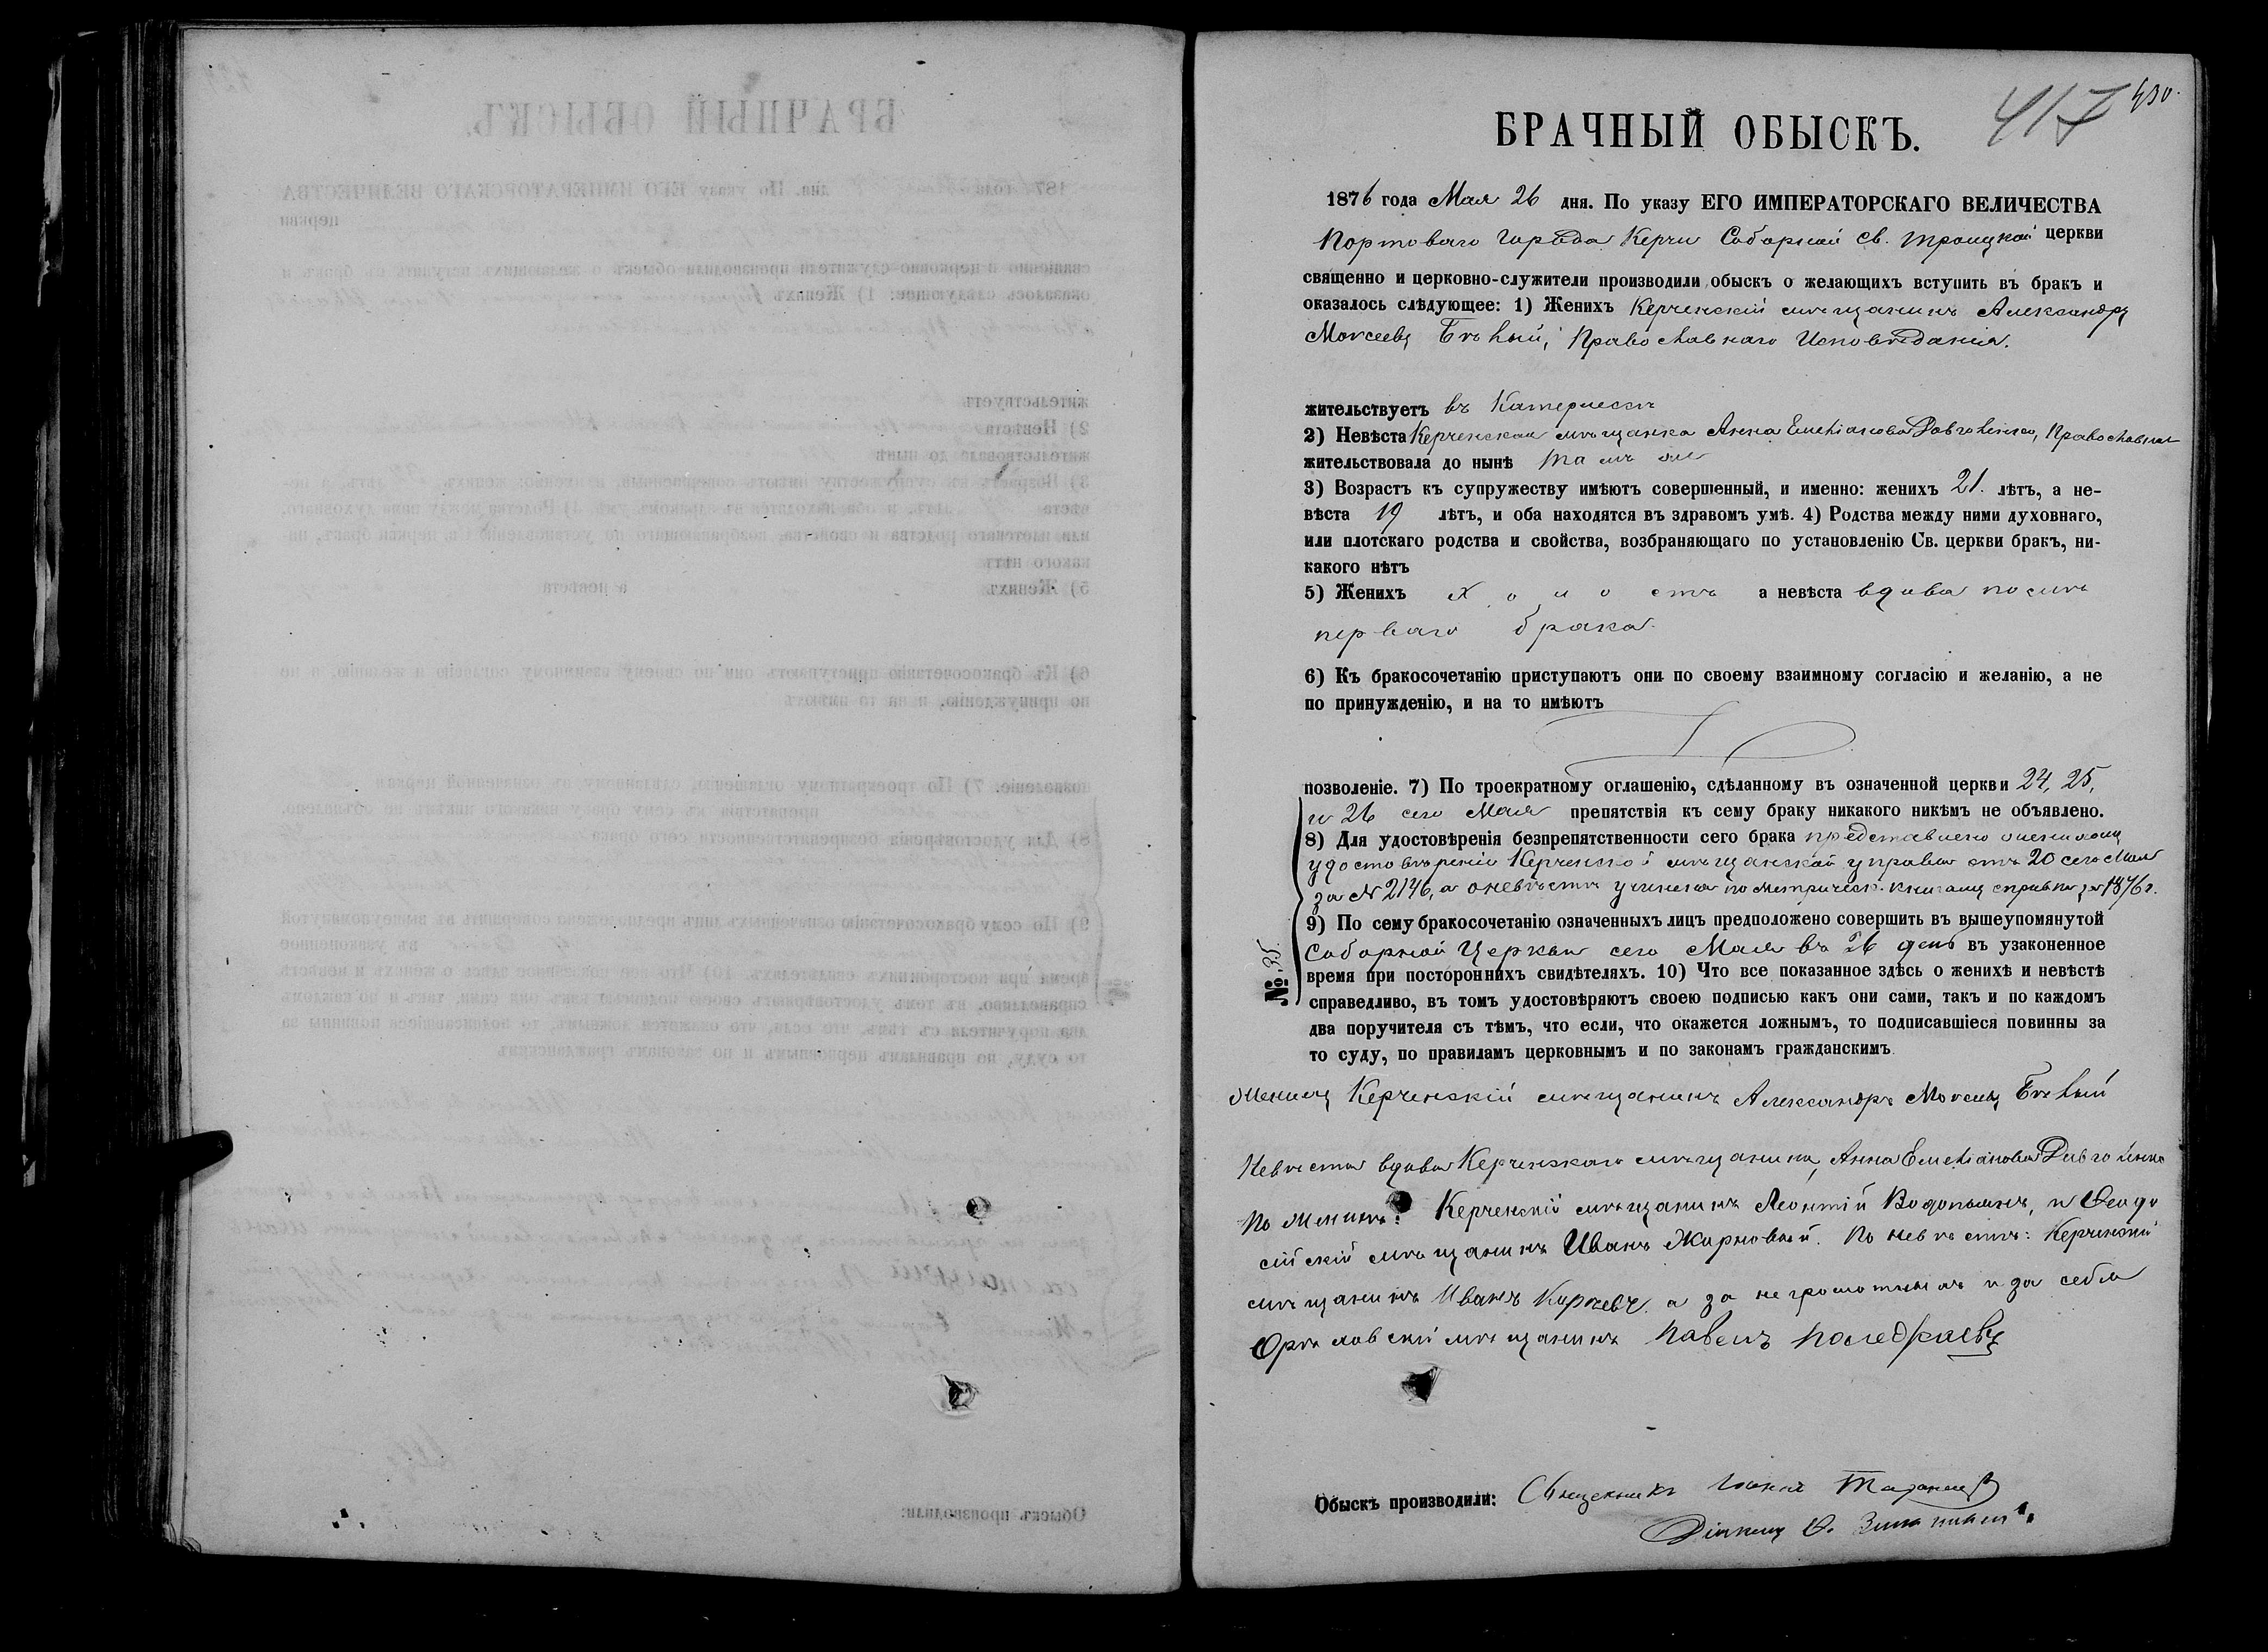 417 430.
БРАЧНЫЙ ОБЫСКЪ.
1876 года Мая 26 дня. По указу ЕГО ИМПЕРАТОРСКАГО ВЕЛИЧЕСТВА
Портоваго города Керчи Соборной Св. Троицкой церкви
священно и церковно-служители производили обыскъ о желающихъ вступить въ бракъ и
оказалось слѣдующее: 1) Женихъ Керченскій мѣщанинъ Александръ
Моисеевъ Бѣлый, Православнаго Исповѣданія.
жительствует въ
2) Невѣста Керченская мѣщанка Анна Емельянова Довголенко, Православная
жительствовала до нынѣ тамъ же
3) Возрастъ къ супружеству имѣютъ совершенный, и именно: женихъ 21. лѣтъ, а не-
вѣста 19 лѣтъ, и оба находятся въ здравомъ умѣ. 4) Родства между ними духовнаго,
или плотскаго родства и свойства, возбраняющаго по установленію Св. церкви бракъ, ни-
какого нѣтъ
5) Женихъ холостъ а невѣста вдова послѣ
перваго брака.
6) Къ бракосочетанію приступаютъ они по своему взаимному согласію и желанію, а не
по принужденію, и на то имѣютъ
позволеніе. 7) По троекратному оглашенію, сдѣланному въ означенной церкви 24, 25,
и 26 сего Мая препятствія къ сему браку никакого никѣмъ не объявлено.
8) Для удостовѣренія безпрепятственности сего брака представлено женихомъ
удостовѣреніе Керченской мѣщанской управы отъ 20 сего Мая
за № 2146, а о невѣстѣ учинена по метрическ. книгамъ справка за 1876 г.
9) По сему бракосочетанію означенныхъ лицъ предположено совершить въ вышеупомянутой
Соборной Церкви сего Мая въ 26 день въ узаконенное
№ 35.
время при постороннихъ свидѣтеляхъ. 10) Что все показанное здѣсь о женихѣ и невѣстѣ
справедливо, въ томъ удостовѣряютъ своею подписью какъ они сами, такъ и по каждомъ
два поручителя съ тѣмъ, что если, что окажется ложнымъ, то подписавшіеся повинны за
то суду, по правиламъ церковнымъ и по законамъ гражданскимъ
Женихъ Керченскій мѣщанинъ Александръ Моисеевъ Бѣлый
Невѣста вдова Керченскаго мѣщанина, Анна Емельянова Довголенко
По женихѣ: Керченскій мѣщанинъ Леонтій Водопьянъ, и Ѳеодо
сійскій мѣщанинъ Иванъ Жарновый. По невѣстѣ: Керченскій
мѣщанинъ Иванъ а за неграмотныхъ и за себя
мѣщанинъ Павелъ
Обыскъ производили: Священникъ Іоаннъ
Діаконъ Ѳ.